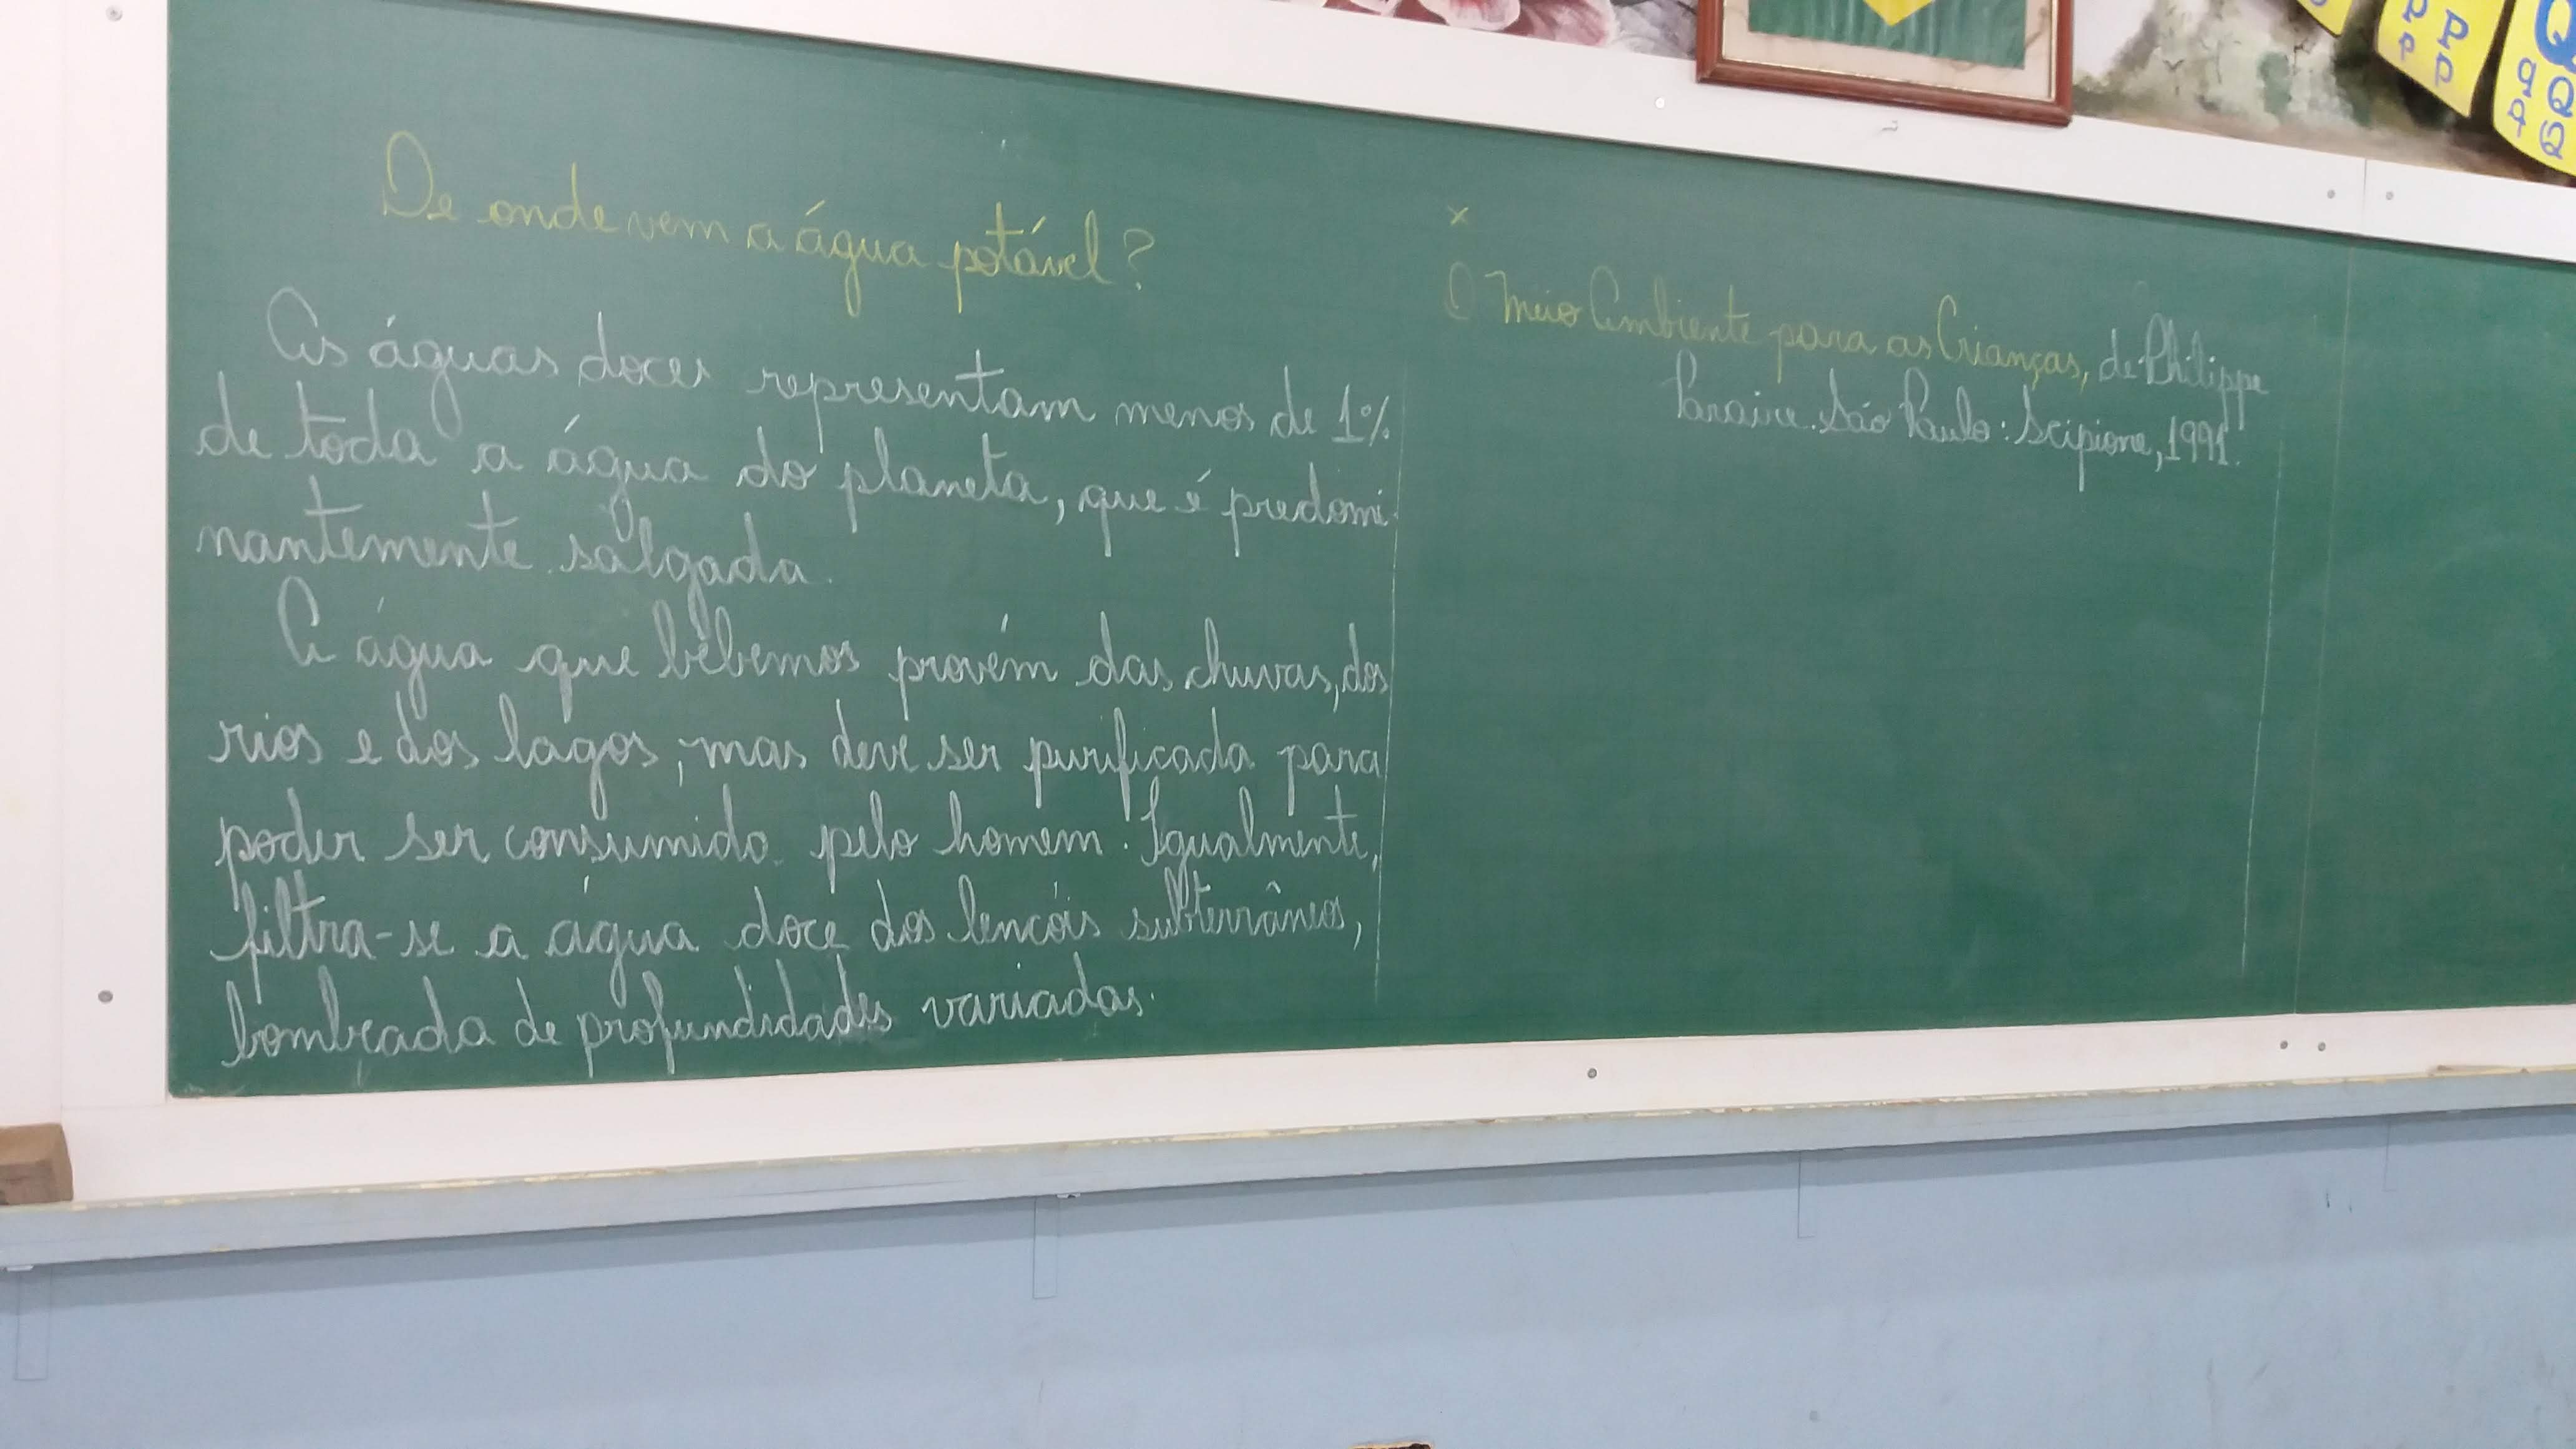 De onde vem a água potável?
As águas doces representam menos de 1%
de toda a água do planeta, que é predomi-
nantemente salgada.
A água que bebemos provém das chuvas, dos
rios e dos lagos, mas deve ser purificada para
poder ser consumida pelo homem. Igualmente,
filtra-se a água doce dos lencóis subterrâneos,
bombeada de profundidades variadas.
x
O Meio Ambiente para as Crianças, de Philippe
Paraire. São Paulo: Scipione, 1991.
P P
P P
q Q
q Q